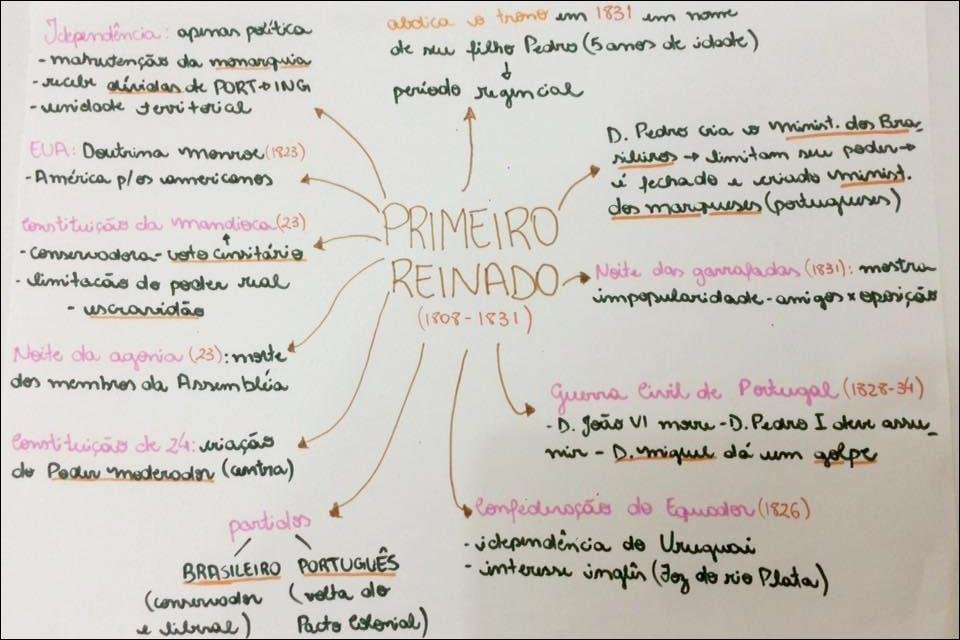 Idependência: apenas política
- manutenção da monarquia
- recebe dívidas de PORT → ING
- unidade territorial
abdica o trono em 1831 em nome
de seu filho Pedro (5 anos de idade)
↓
período regencial
EUA: Doutrina Monroe (1823)
- América p/ os americanos
D. Pedro cria o minist. dos Bra-
sileiros → limitam seu poder →
é fechado e criado minist.
dos marqueses (portugueses)
Constituição da mandioca (23)
- conservadora - voto censitário
- limitacão do poder real
- escravidão
PRIMEIRO
REINADO
(1808 - 1831)
Noite das garrafadas (1831): mostra
impopularidade - amigos x oposição
Noite da agonia (23): morte
dos membros da Assembléia
Guerra Civil de Portugal (1828-34)
- D. João VI morre - D. Pedro I deve assu-
mir - D. miguel dá um golpe
Constituição de 24: criação
do Poder moderador (centra)
partidos
BRASILEIRO PORTUGUÊS
(conservador
e liberal)
(volta do
Pacto Colonial)
Confederação do Equador (1826)
- idependência do Uruguai
- interesse inglês (Foz do rio Plata)